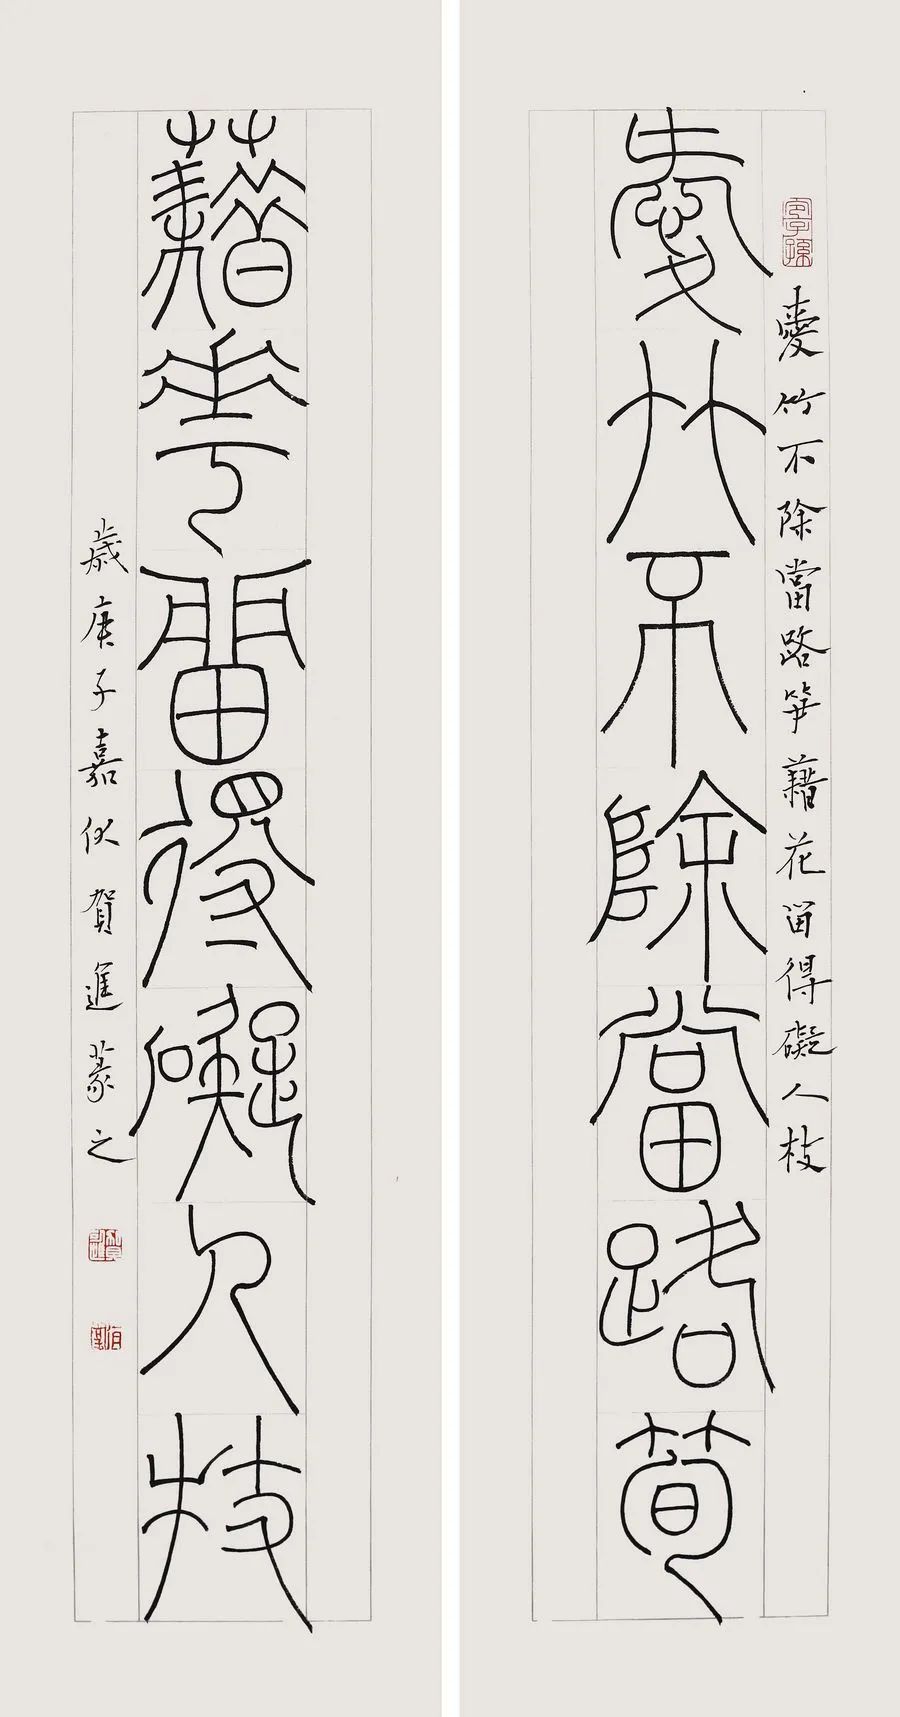 愛竹不除當路笋藉花留得礙人枝
愛竹不除當路筍
藉花留得礙人枝
歲庚子嘉秋賀進篆之
賀進